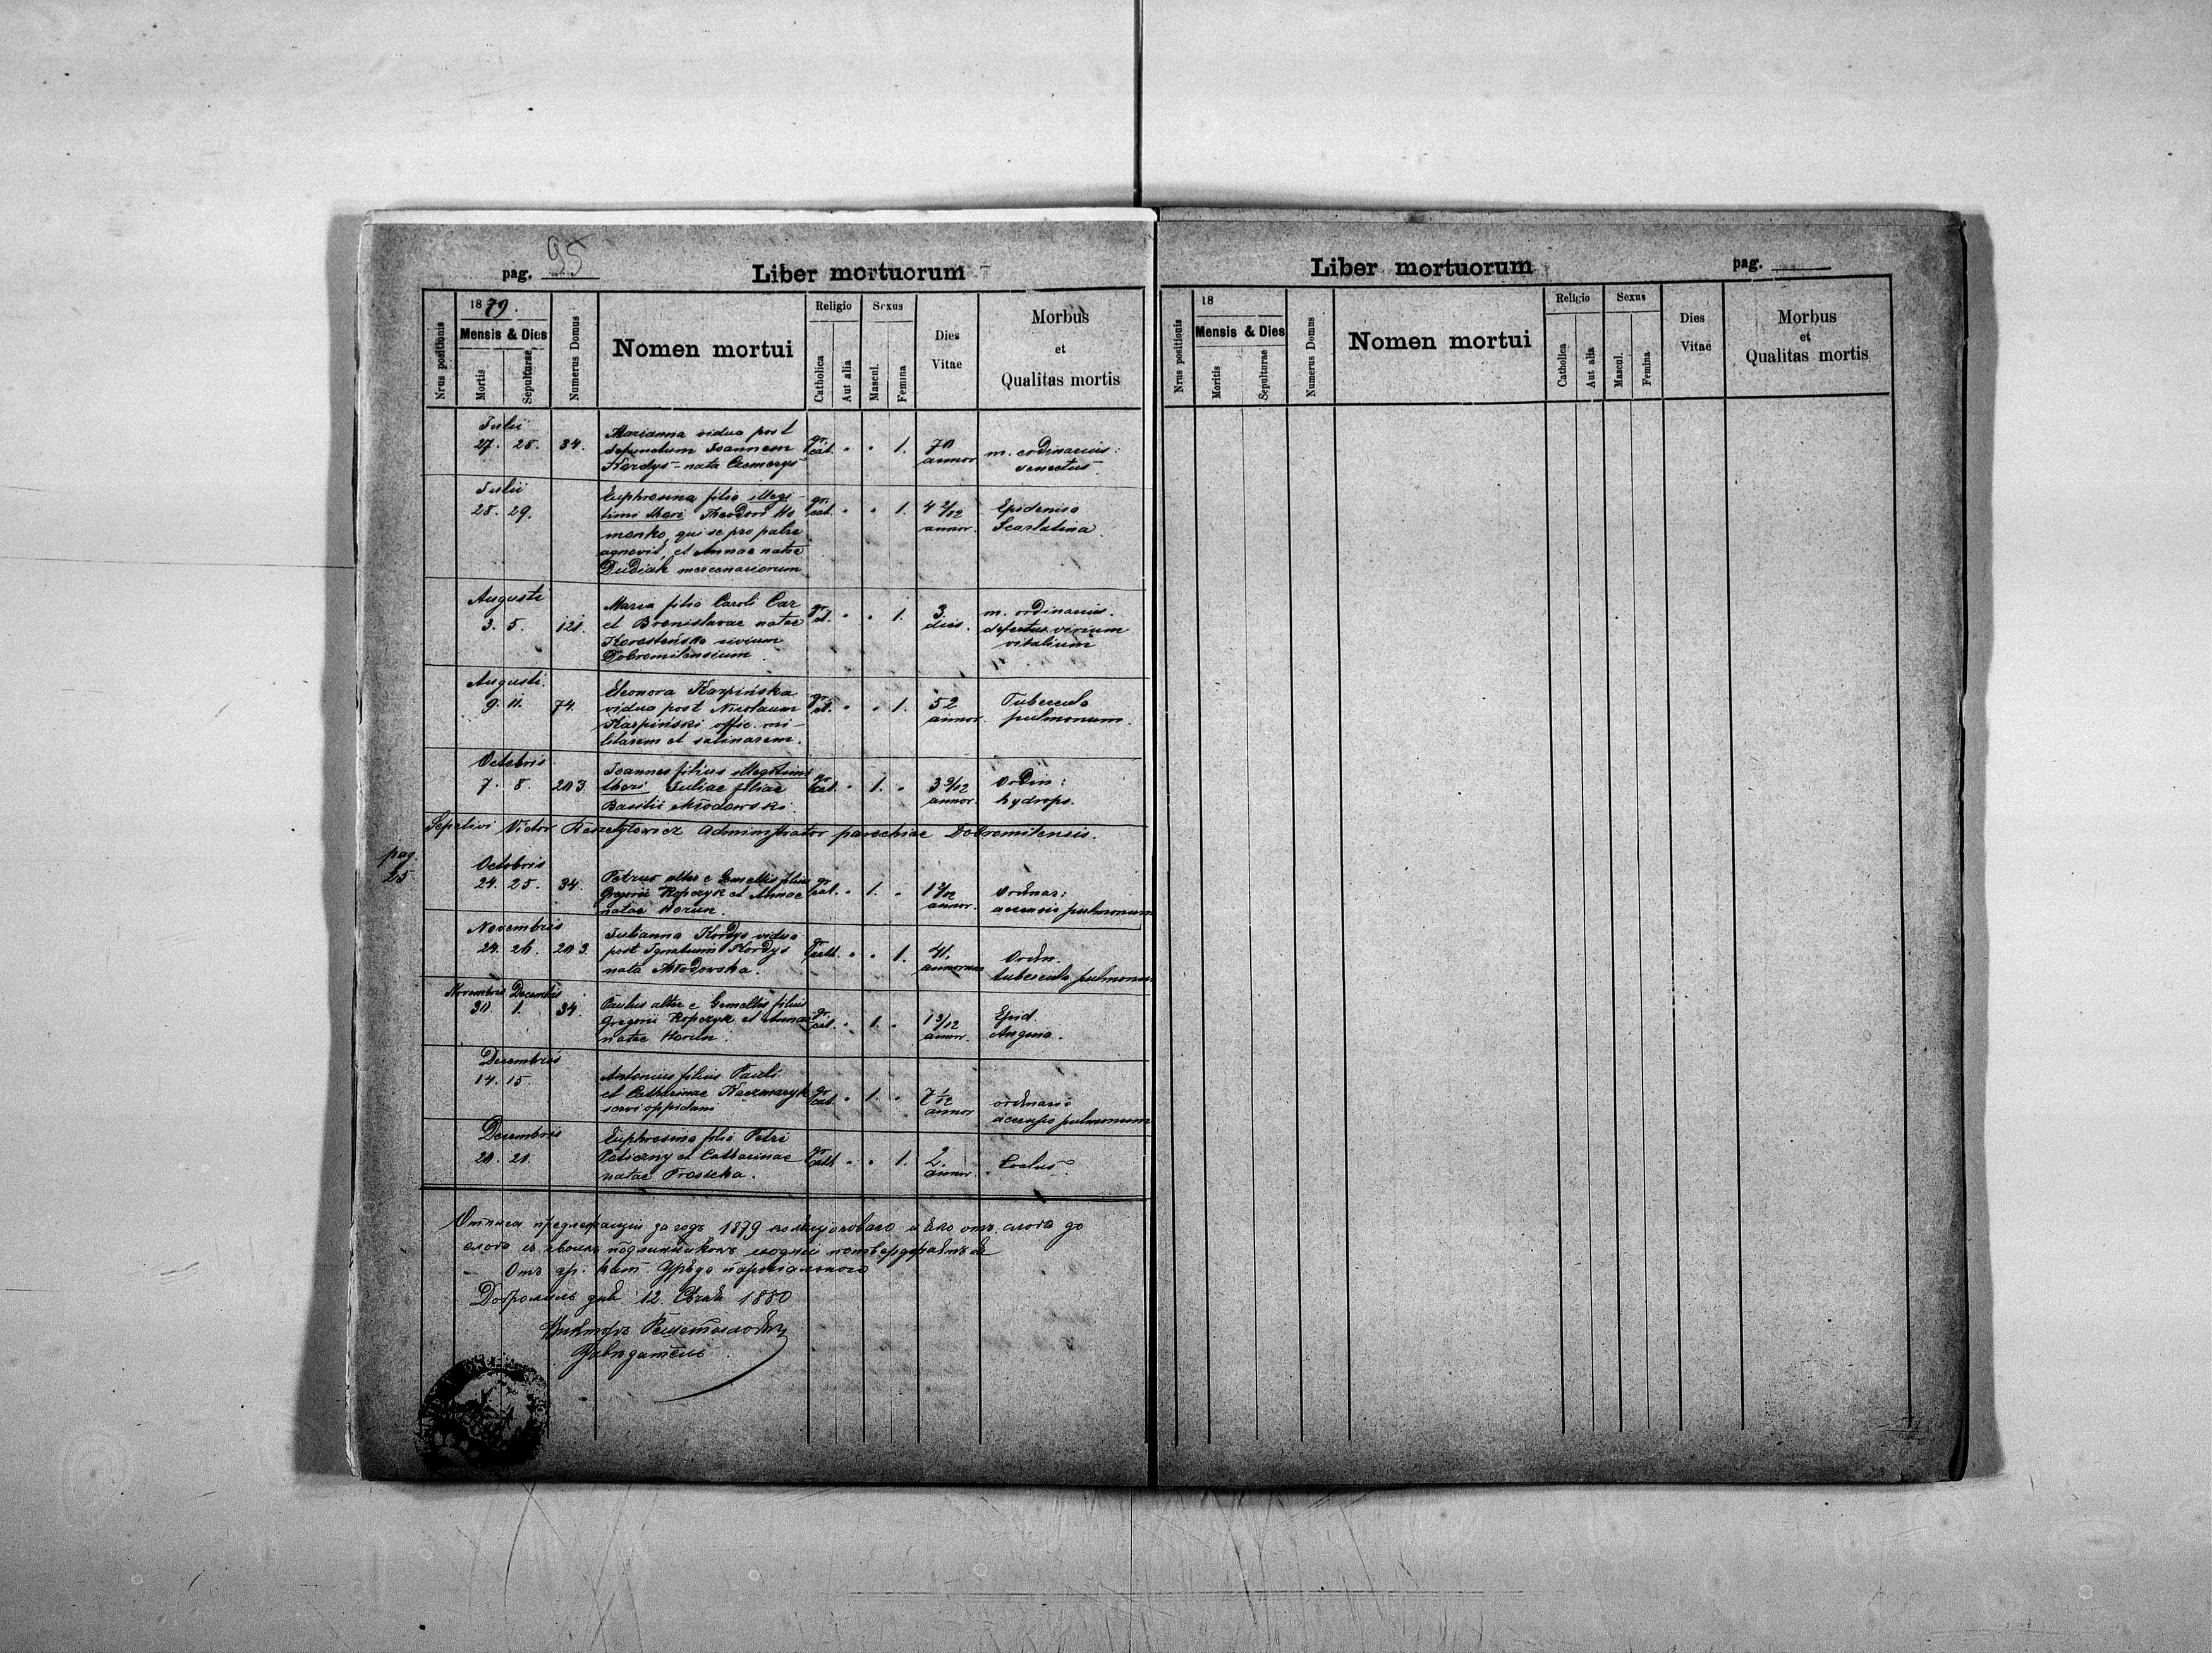 pag. 95
Liber mortuorum
Nrus positionis
1879.
Mensis & Dies
Mortis
Sepulturae
Numerus Domus
Nomen mortui
Religio
Catholica
Aut alia
Sexus
Mascul.
Femina
Dies
Vitae
Morbus
et
Qualitas mortis
Julii
27. 28. 34.
Marianna vidua post
defunctum Joannem
Kordys - nata
gr. cat. " " 1.
70
annor
m. ordinarius:
senectus
Julii
28. 29.
Euphrosina filia illegi-
timi thori Theodori Ho
menko, qui se pro patre
agnovit, et Annae natae
Dudiak mercenariorum
gr. cat. " " 1.
4 2/12
annor.
Epidemia
Scarlatina.
Augusti
3. 5. 121.
Maria filia Caroli Car
et Bronislavae natae
civium
Dobromilensium
gr. ct. " " 1.
3.
dies.
m. ordinarius.
defectus virium
vitalium
Augusti.
9. 11. 74.
Eleonora Karpińska
vidua post Nicolaum
Karpiński offic. mi-
litarem et salinarem.
gr. ct. " " 1.
52
annor.
Tubercula
pulmonum.
Octobris
7. 8. 203.
Joannes filius illegitimi
thori Juliae filiae
Basilii Młodowski.
gr. cat. " 1. "
3 9/12
annor.
Ordin:
hydrops.
Sepelivi Victor Administrator parochiae Dobromilensis.
pag.
25
Octobris
24. 25. 34.
Petrus alter e Gemellis filius
Gregorii Kopczyk et Annae
natae Horun.
gr. cat. " 1. "
1 2/12
annor.
Ordinar:
accensio pulmonum
Novembris
24. 26. 203.
Julianna Kordys vidua
post Ignatium Kordys
nata Młodowska.
gr. cath. " " 1.
41.
annorum
Ordin.
tubercula pulmonum
Novembris Decembris
30. 1. 34.
Paulus alter e Gemellis filius
Gregorii Kopczyk et Annae
natae Horun.
gr. cat. " 1. "
1 3/12
annor.
Epid.
Angina.
Decembris
14. 15.
Antonius filius Pauli
et Catharinae Kaczmaryk
servi oppidani
gr. cat. " 1. "
7 1/12
annor
ordinaria
accensio pulmonum
Decembris
20. 21.
Euphrosina filia Petri
et Catharinae
natae
gr. cath " " 1.
2.
annor.
за годъ 1879 отъ слова до
слова съ
Отъ гр. кат. Уряда парохіального
Добромиль дня 12. Січня 1880
Викторъ
Liber mortuorum
pag.
Nrus positionis
18
Mensis & Dies
Moritis
Sepulturae
Numerus Domus
Nomen mortui
Religio
Catholica
Aut alia
Sexus
Mascul.
Femina
Dies
Vitae
Morbus
et
Qualitas mortis